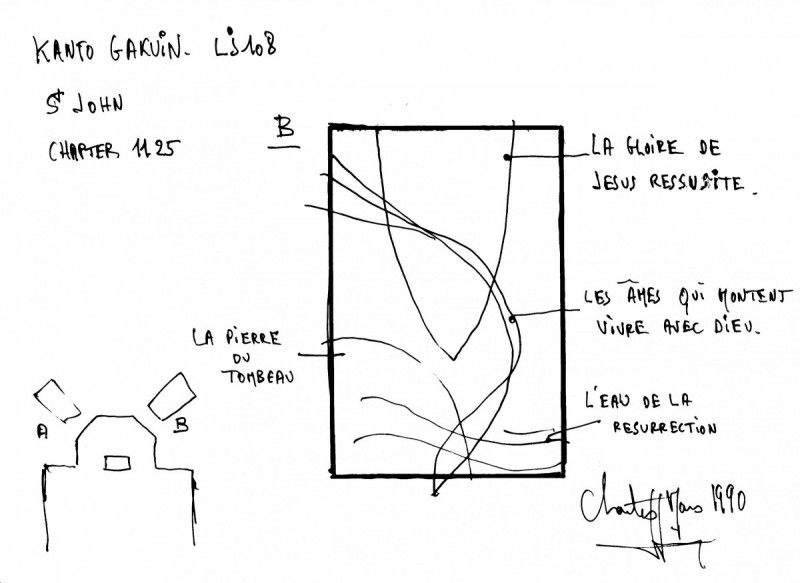 KANTO GAKUIN. LS108
St JOHN
CHAPTER 11.25
B
LA GLOIRE DE
JESUS RESSUSITE.
LES ÂMES QUI MONTENT
VIVRE AVEC DIEU.
LA PIERRE
DU
TOMBEAU
L'EAU DE LA
RESURRECTION
A
B
Chartes Mars 1990